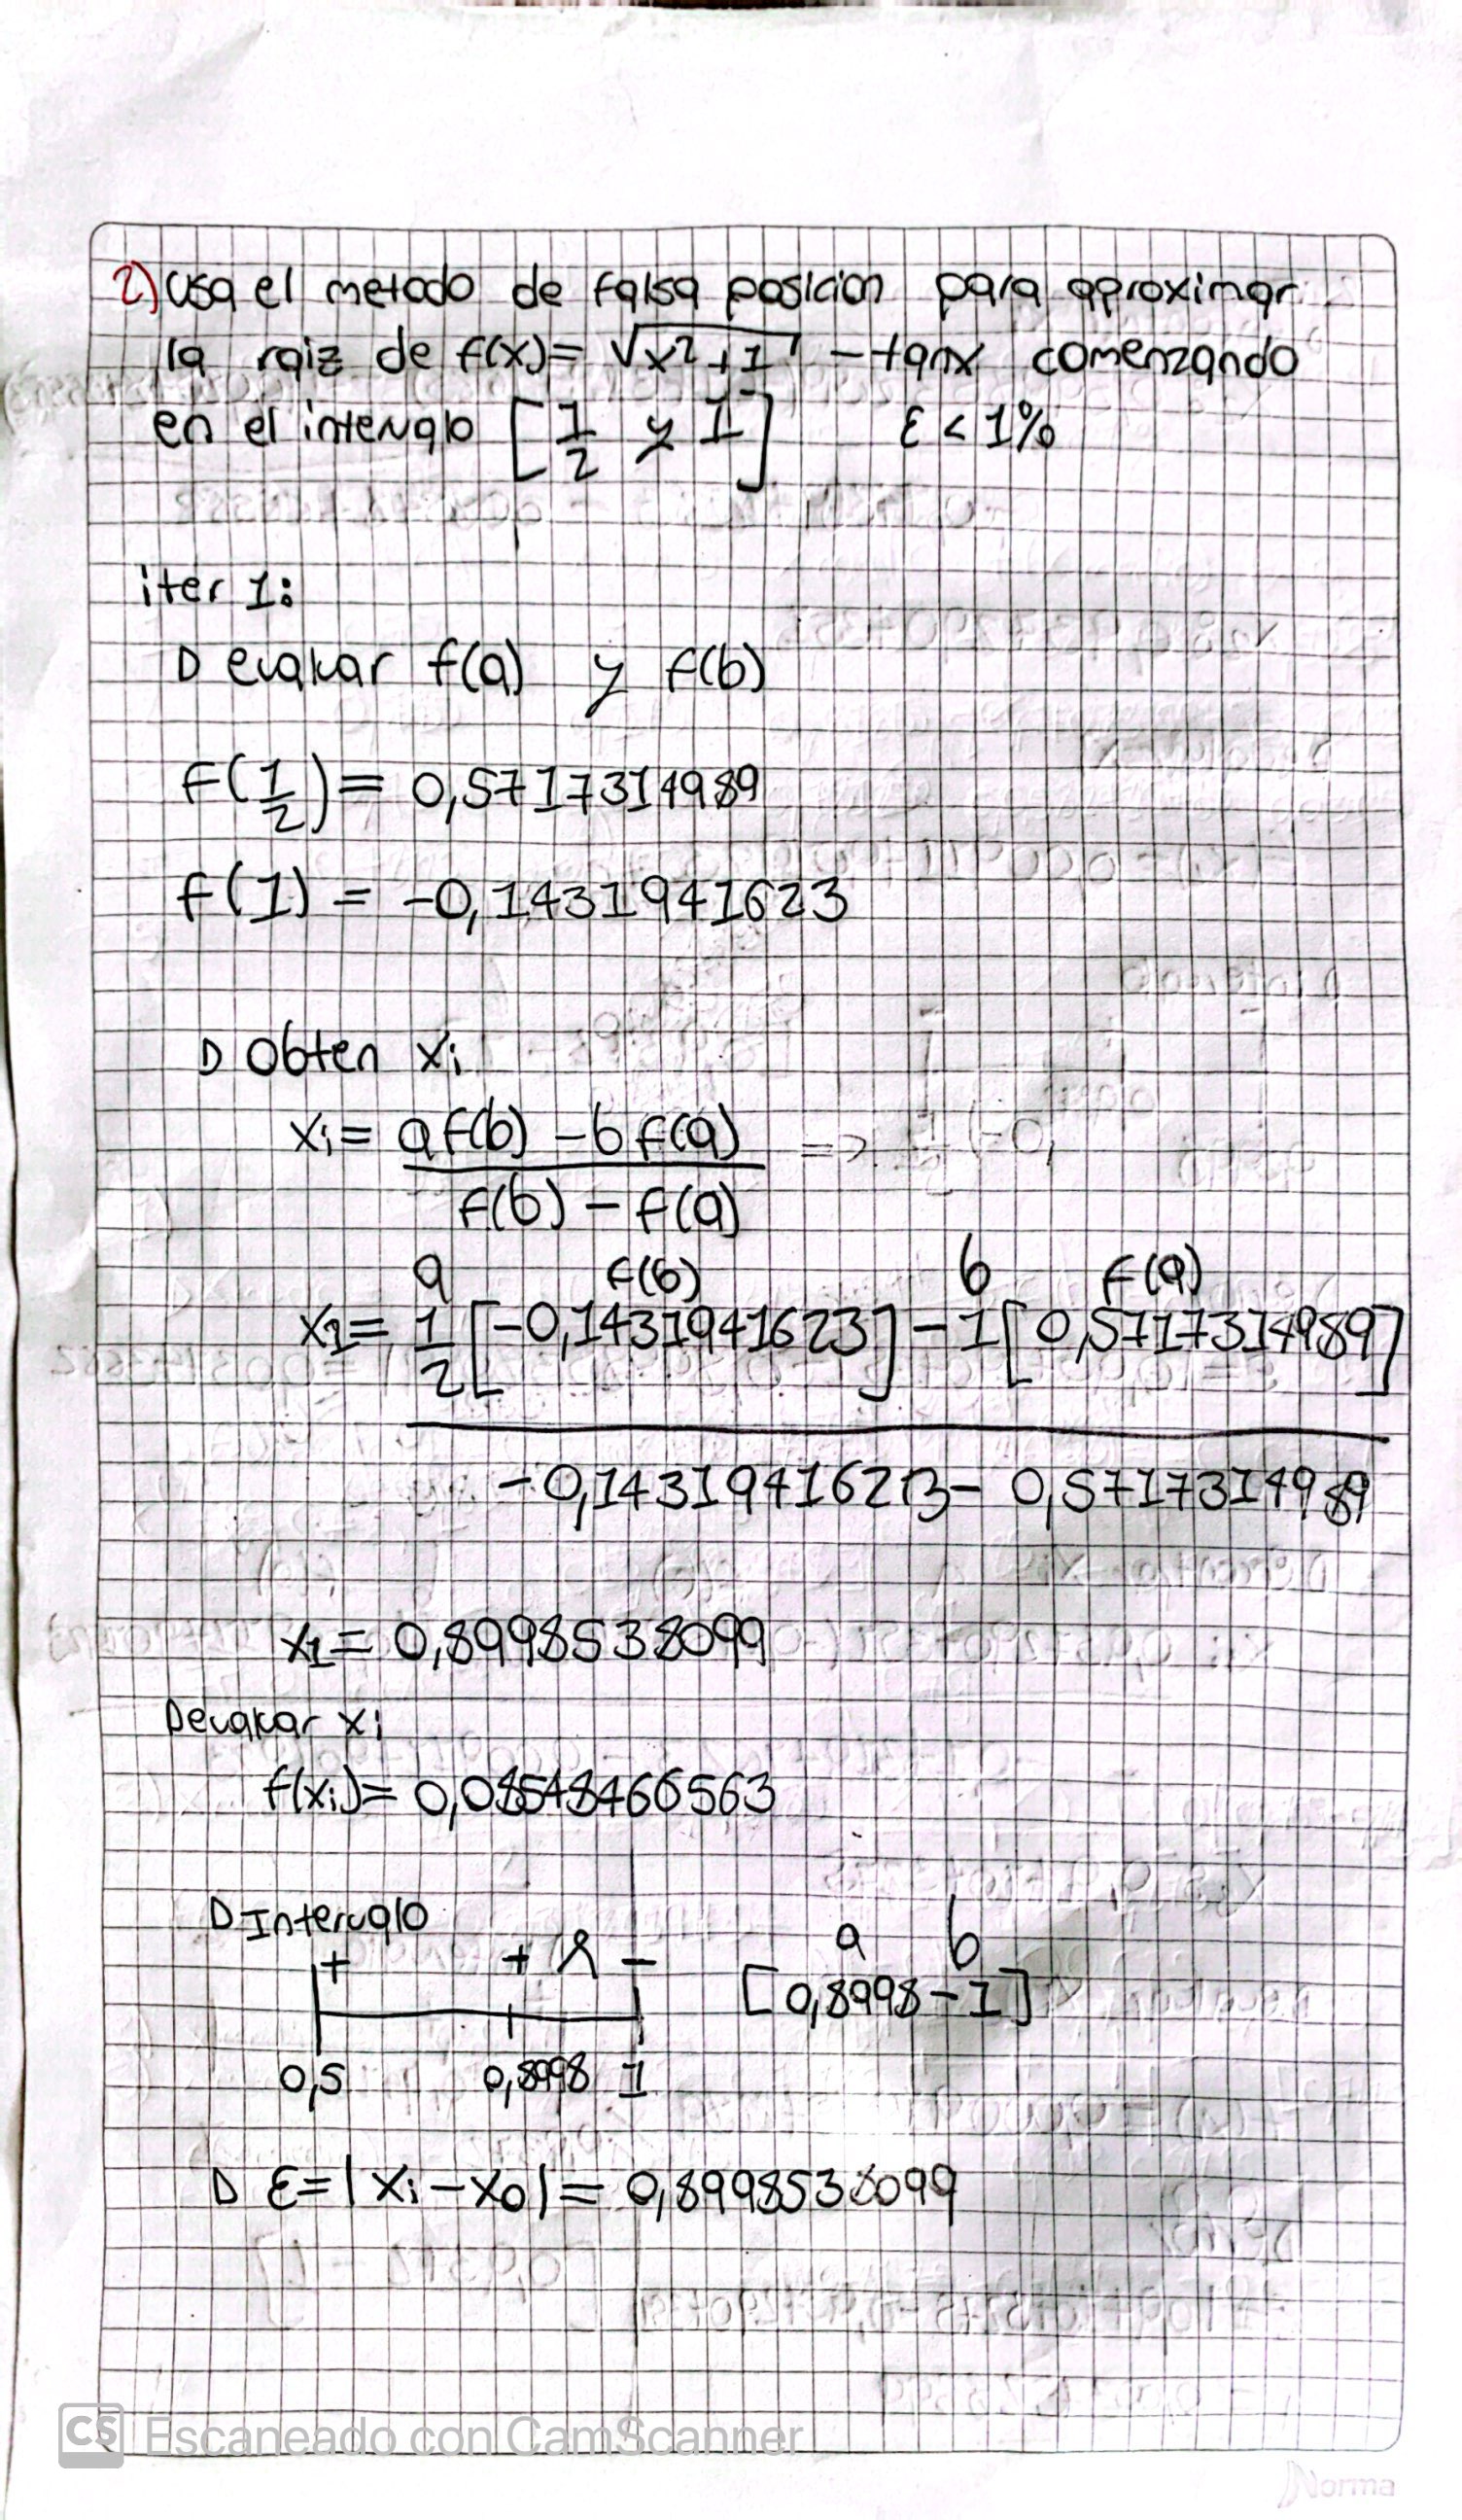 2) Usa el metodo de falsa posicion para aproximar
la raiz de f(x)= √x²+1 - tanx comenzando
en el intervalo [1/2 y 1] ε < 1%
iter 1:
D evaluar f(a) y f(b)
F(1/2)= 0,5717314989
f(1) = -0,1431941623
D Obten xi
xi= af(b) - b f(a) => 
f(b) - f(a)
a f(b) b f(a)
x1= 1/2 [-0,1431941623] - 1[0,5717314989]
-0,1431941623- 0,5717314989
x1= 0,8998538099
D evaluar xi
f(xi)= 0,08548466563
D Intervalo
+ + λ - a b
[0,8998 - 1]
0,5 0,8998 1
D ε=|xi-x0|= 0,8998538099
CS Escaneado con CamScanner
Norma